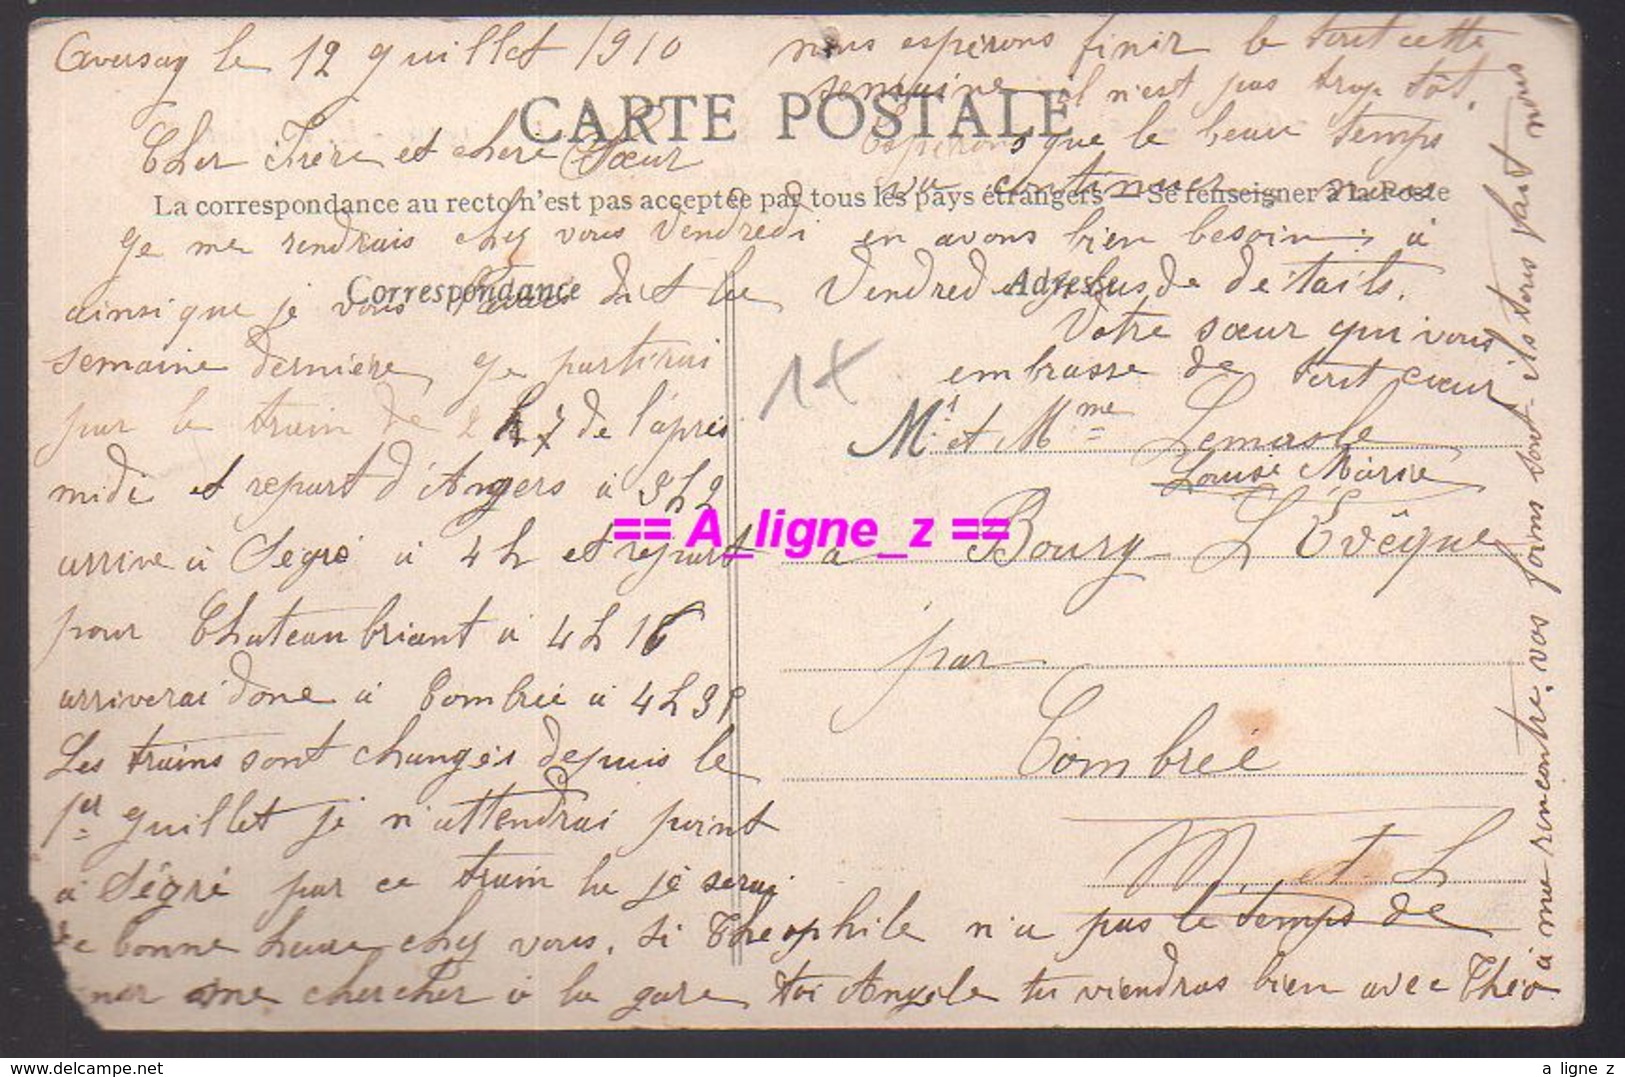 le 12 Juillet 1910
CARTE POSTALE
Cher Frère et chère Sœur
La correspondance au recto n'est pas acceptée par tous les pays étrangers — Se renseigner à la Poste
Je me rendrais chez vous Vendredi
Correspondance
ainsi que je vous dit la
semaine dernière, Je partirai
par le train de 2 h 7 de l'après
midi et repart d'Angers à 3h2
arrive à Segré à 4 h et repart
pour Chateaubriant à 4 h 16
arriverai donc à Combrée à 4 h 39
Les trains sont changés depuis le
1er Juillet je n'attendrai point
à Ségré par ce train la je serai
de bonne heure chez vous, si Théophile n'a pas le temps de
me chercher à la gare toi Angèle tu viendras bien avec Théo
à me rencontre, vos foins sont-ils tous fait nous
nous espérons finir le tout cette
semaine il n'est pas trop tôt,
Espérons que le beau temps
va continuer nous
en avons bien besoin, à
Vendredi plus de détails.
Adresse
Votre sœur qui vous
embrasse de tout cœur
1x
Mr et Mme Lemasle
Louise Marie
à Bourg L'Evêque
par
Combrée
M. et L
== A_ligne_z ==
a ligne z
www.delcampe.net